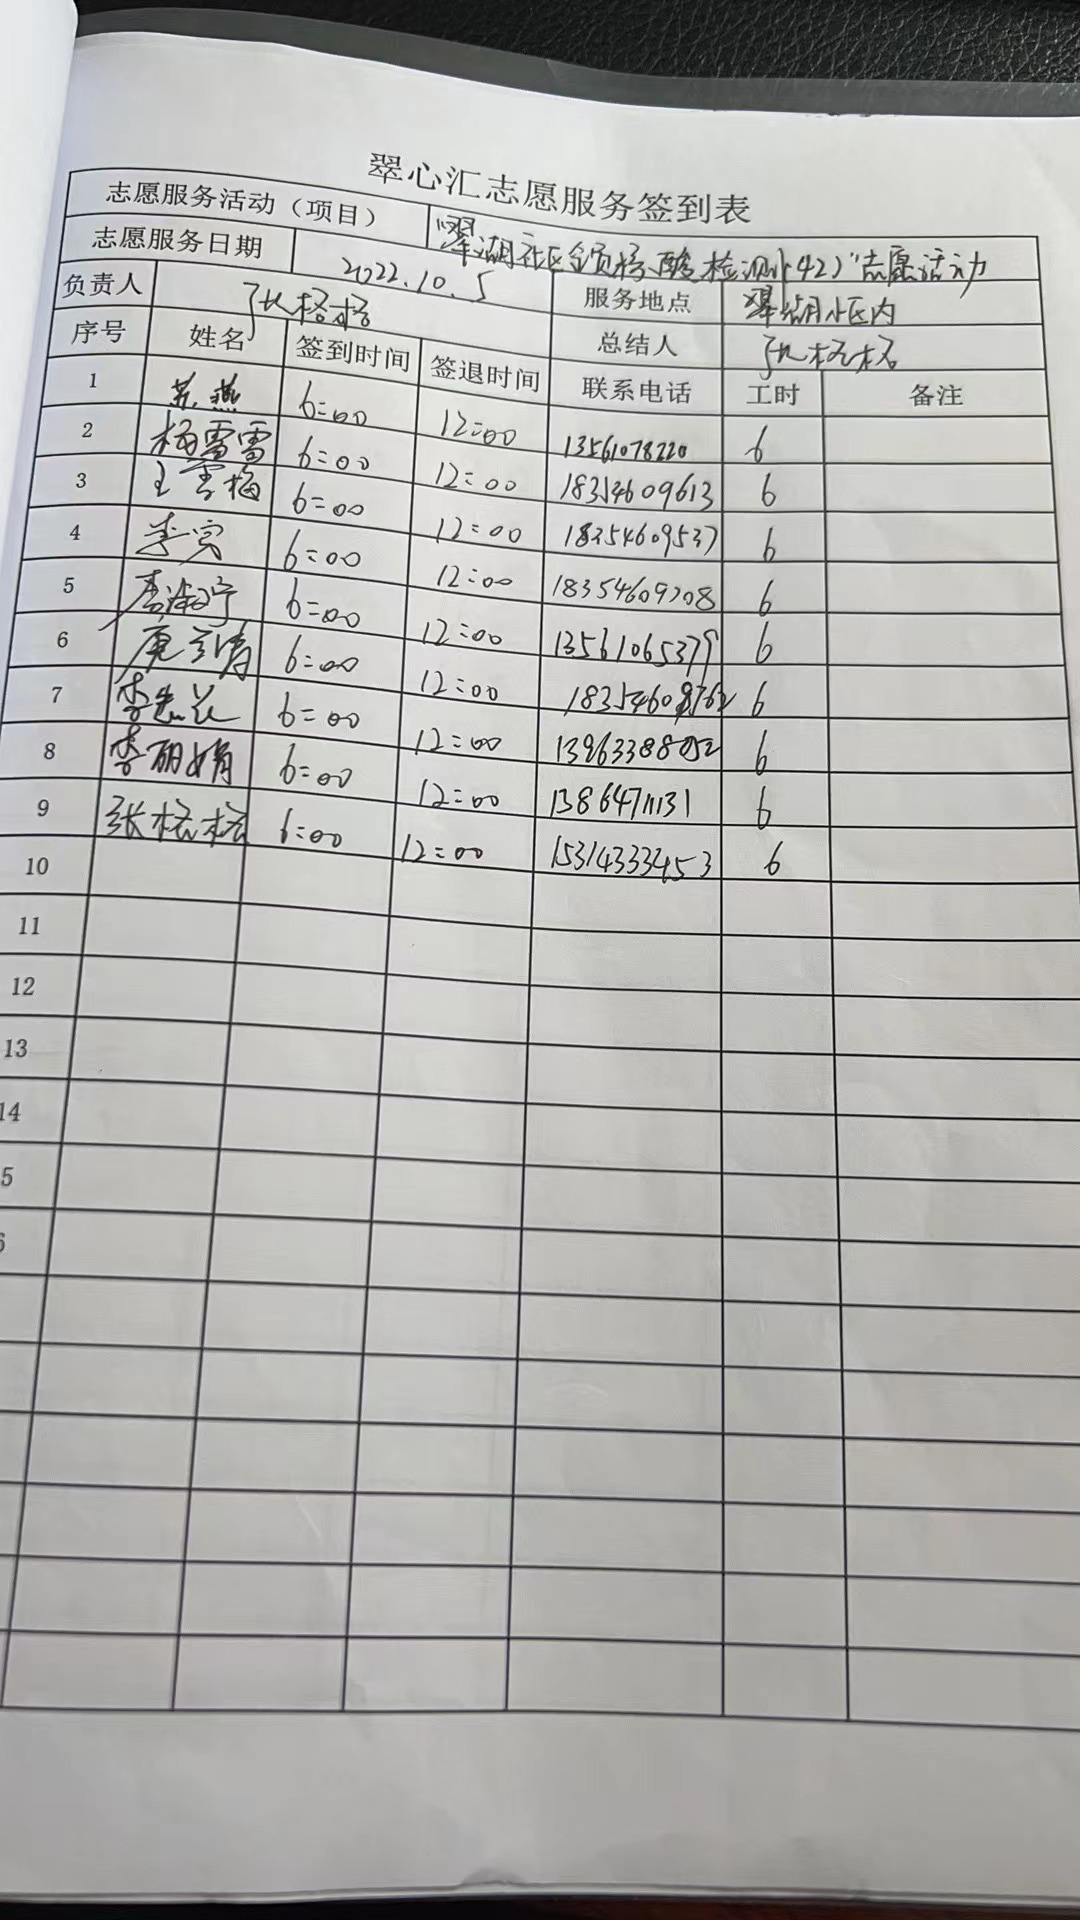 翠心汇志愿服务签到表
志愿服务活动（项目） "翠湖社区全员核酸检测(42)"志愿活动
志愿服务日期 2022.10.5 服务地点 翠湖小区内
负责人 张格格 总结人 张格格
序号 姓名 签到时间 签退时间 联系电话 工时 备注
1 苏燕 6:00 12:00 13561078220 6
2 杨雪雪 6:00 12:00 18354609613 6
3 王雪梅 6:00 12:00 18354609537 6
4 李宾 6:00 12:00 18354609208 6
5 6:00 12:00 13561065379 6
6 6:00 12:00 6
7 李志花 6:00 12:00 13963388052 6
8 李丽娟 6:00 12:00 13864711131 6
9 张格格 6:00 12:00 15314333453 6
10
11
12
13
14
5
6